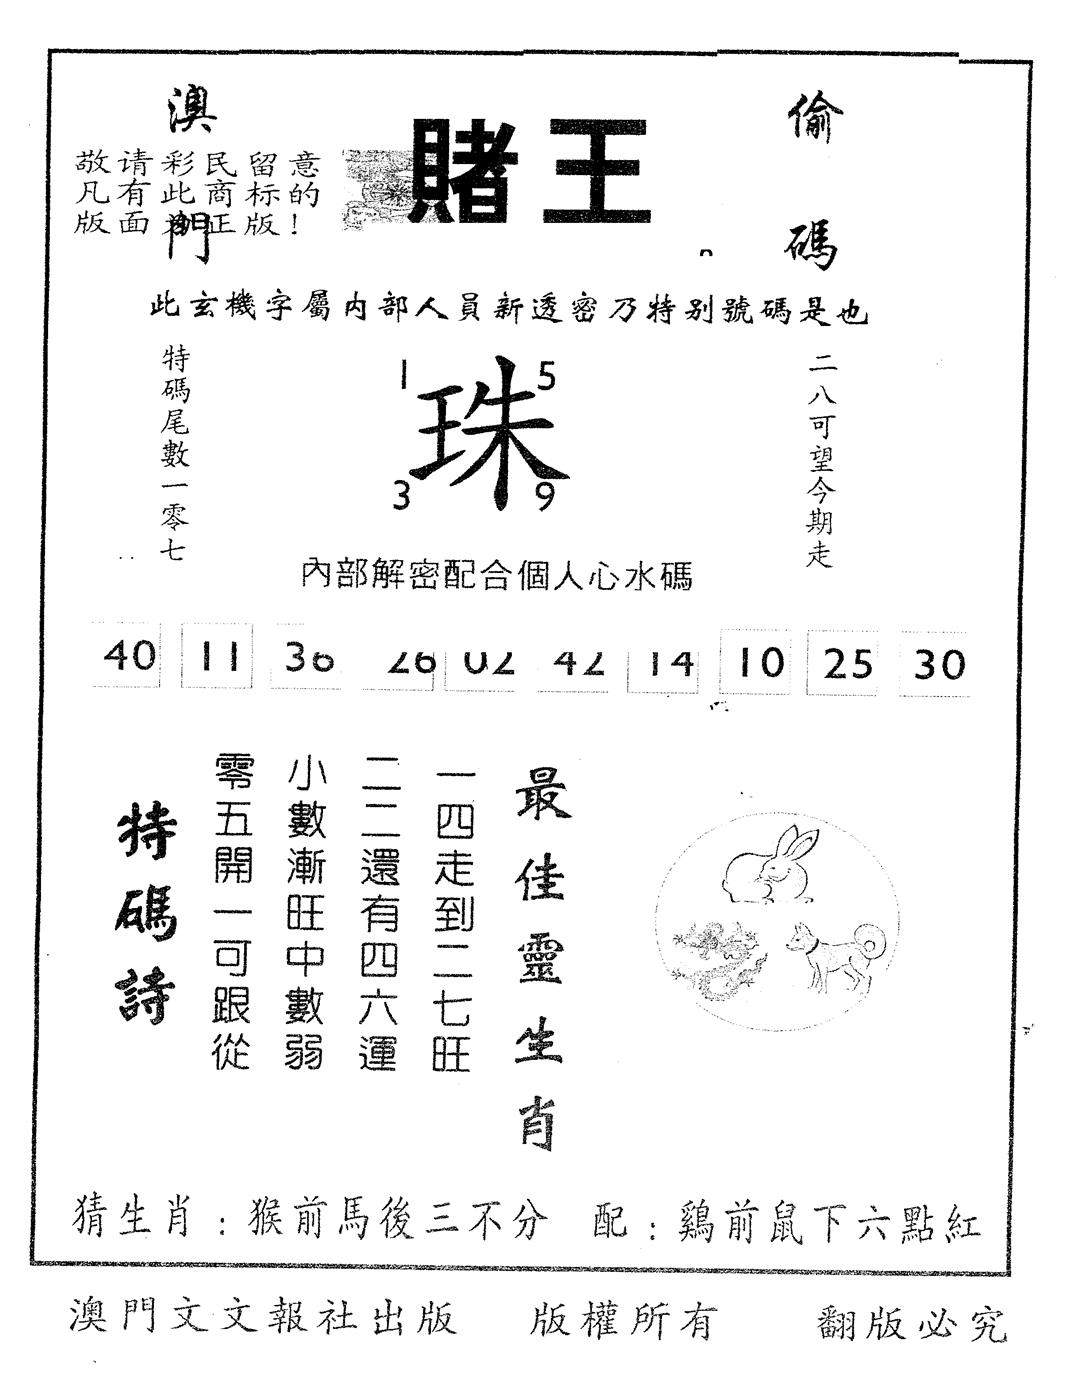 澳門
賭王
偷碼
敬请彩民留意
凡有此商标的
版面 正版！
此玄機字屬内部人員新透密乃特别號碼是也
特碼尾數一零七
1 5
珠
3 9
二八可望今期走
內部解密配合個人心水碼
40 11 36 26 02 42 14 10 25 30
特碼詩
零五開一可跟從
小數漸旺中數弱
二二還有四六運
一四走到二七旺
最佳靈生肖
猜生肖：猴前馬後三不分 配：鷄前鼠下六點紅
澳門文文報社出版 版權所有 翻版必究